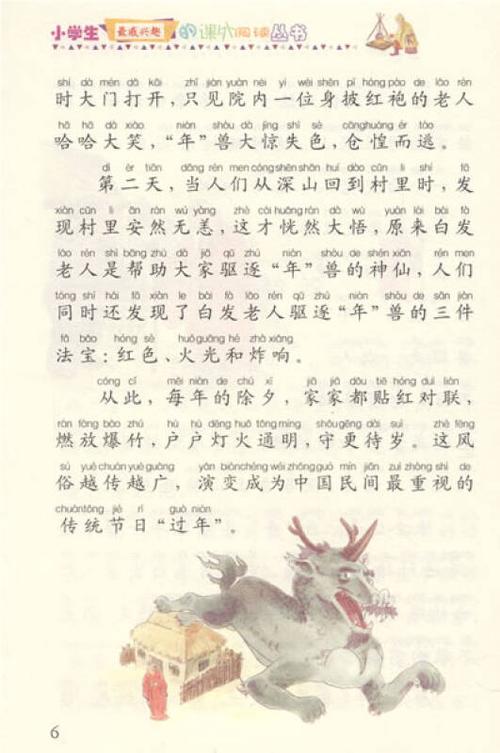 小学生最感兴趣的课外阅读丛书
shí dà mén dǎ kāi zhǐ jiàn yuàn nèi yí wèi shēn pī hóng páo de lǎo rén
时大门打开，只见院内一位身披红袍的老人
hā hā dà xiào nián shòu dà jīng shī sè cānghuáng ér táo
哈哈大笑，“年”兽大惊失色，仓惶而逃。
dì èr tiān dāng rén men cóng shēn shān huí dào cūn lǐ shí fā
第二天，当人们从深山回到村里时，发
xiàn cūn lǐ ān rán wú yàng zhè cái huǎng rán dà wù yuán lái bái fà
现村里安然无恙，这才恍然大悟，原来白发
lǎo rén shì bāng zhù dà jiā qū zhú nián shòu de shén xiān rén men
老人是帮助大家驱逐“年”兽的神仙，人们
tóng shí hái fā xiàn le bái fà lǎo rén qū zhú nián shòu de sān jiàn
同时还发现了白发老人驱逐“年”兽的三件
fǎ bǎo hóng sè huǒ guāng hé zhà xiǎng
法宝：红色、火光和炸响。
cóng cǐ měi nián de chú xī jiā jiā dōu tiē hóng duì lián
从此，每年的除夕，家家都贴红对联，
rán fàng bào zhú hù hù dēng huǒ tōng míng shǒu gēng dài suì zhè fēng
燃放爆竹，户户灯火通明，守更待岁。这风
sú yuè chuán yuè guǎng yǎn biàn chéng wéi zhōng guó mín jiān zuì zhòng shì de
俗越传越广，演变成为中国民间最重视的
chuántǒng jié rì guò nián
传统节日“过年”。
6